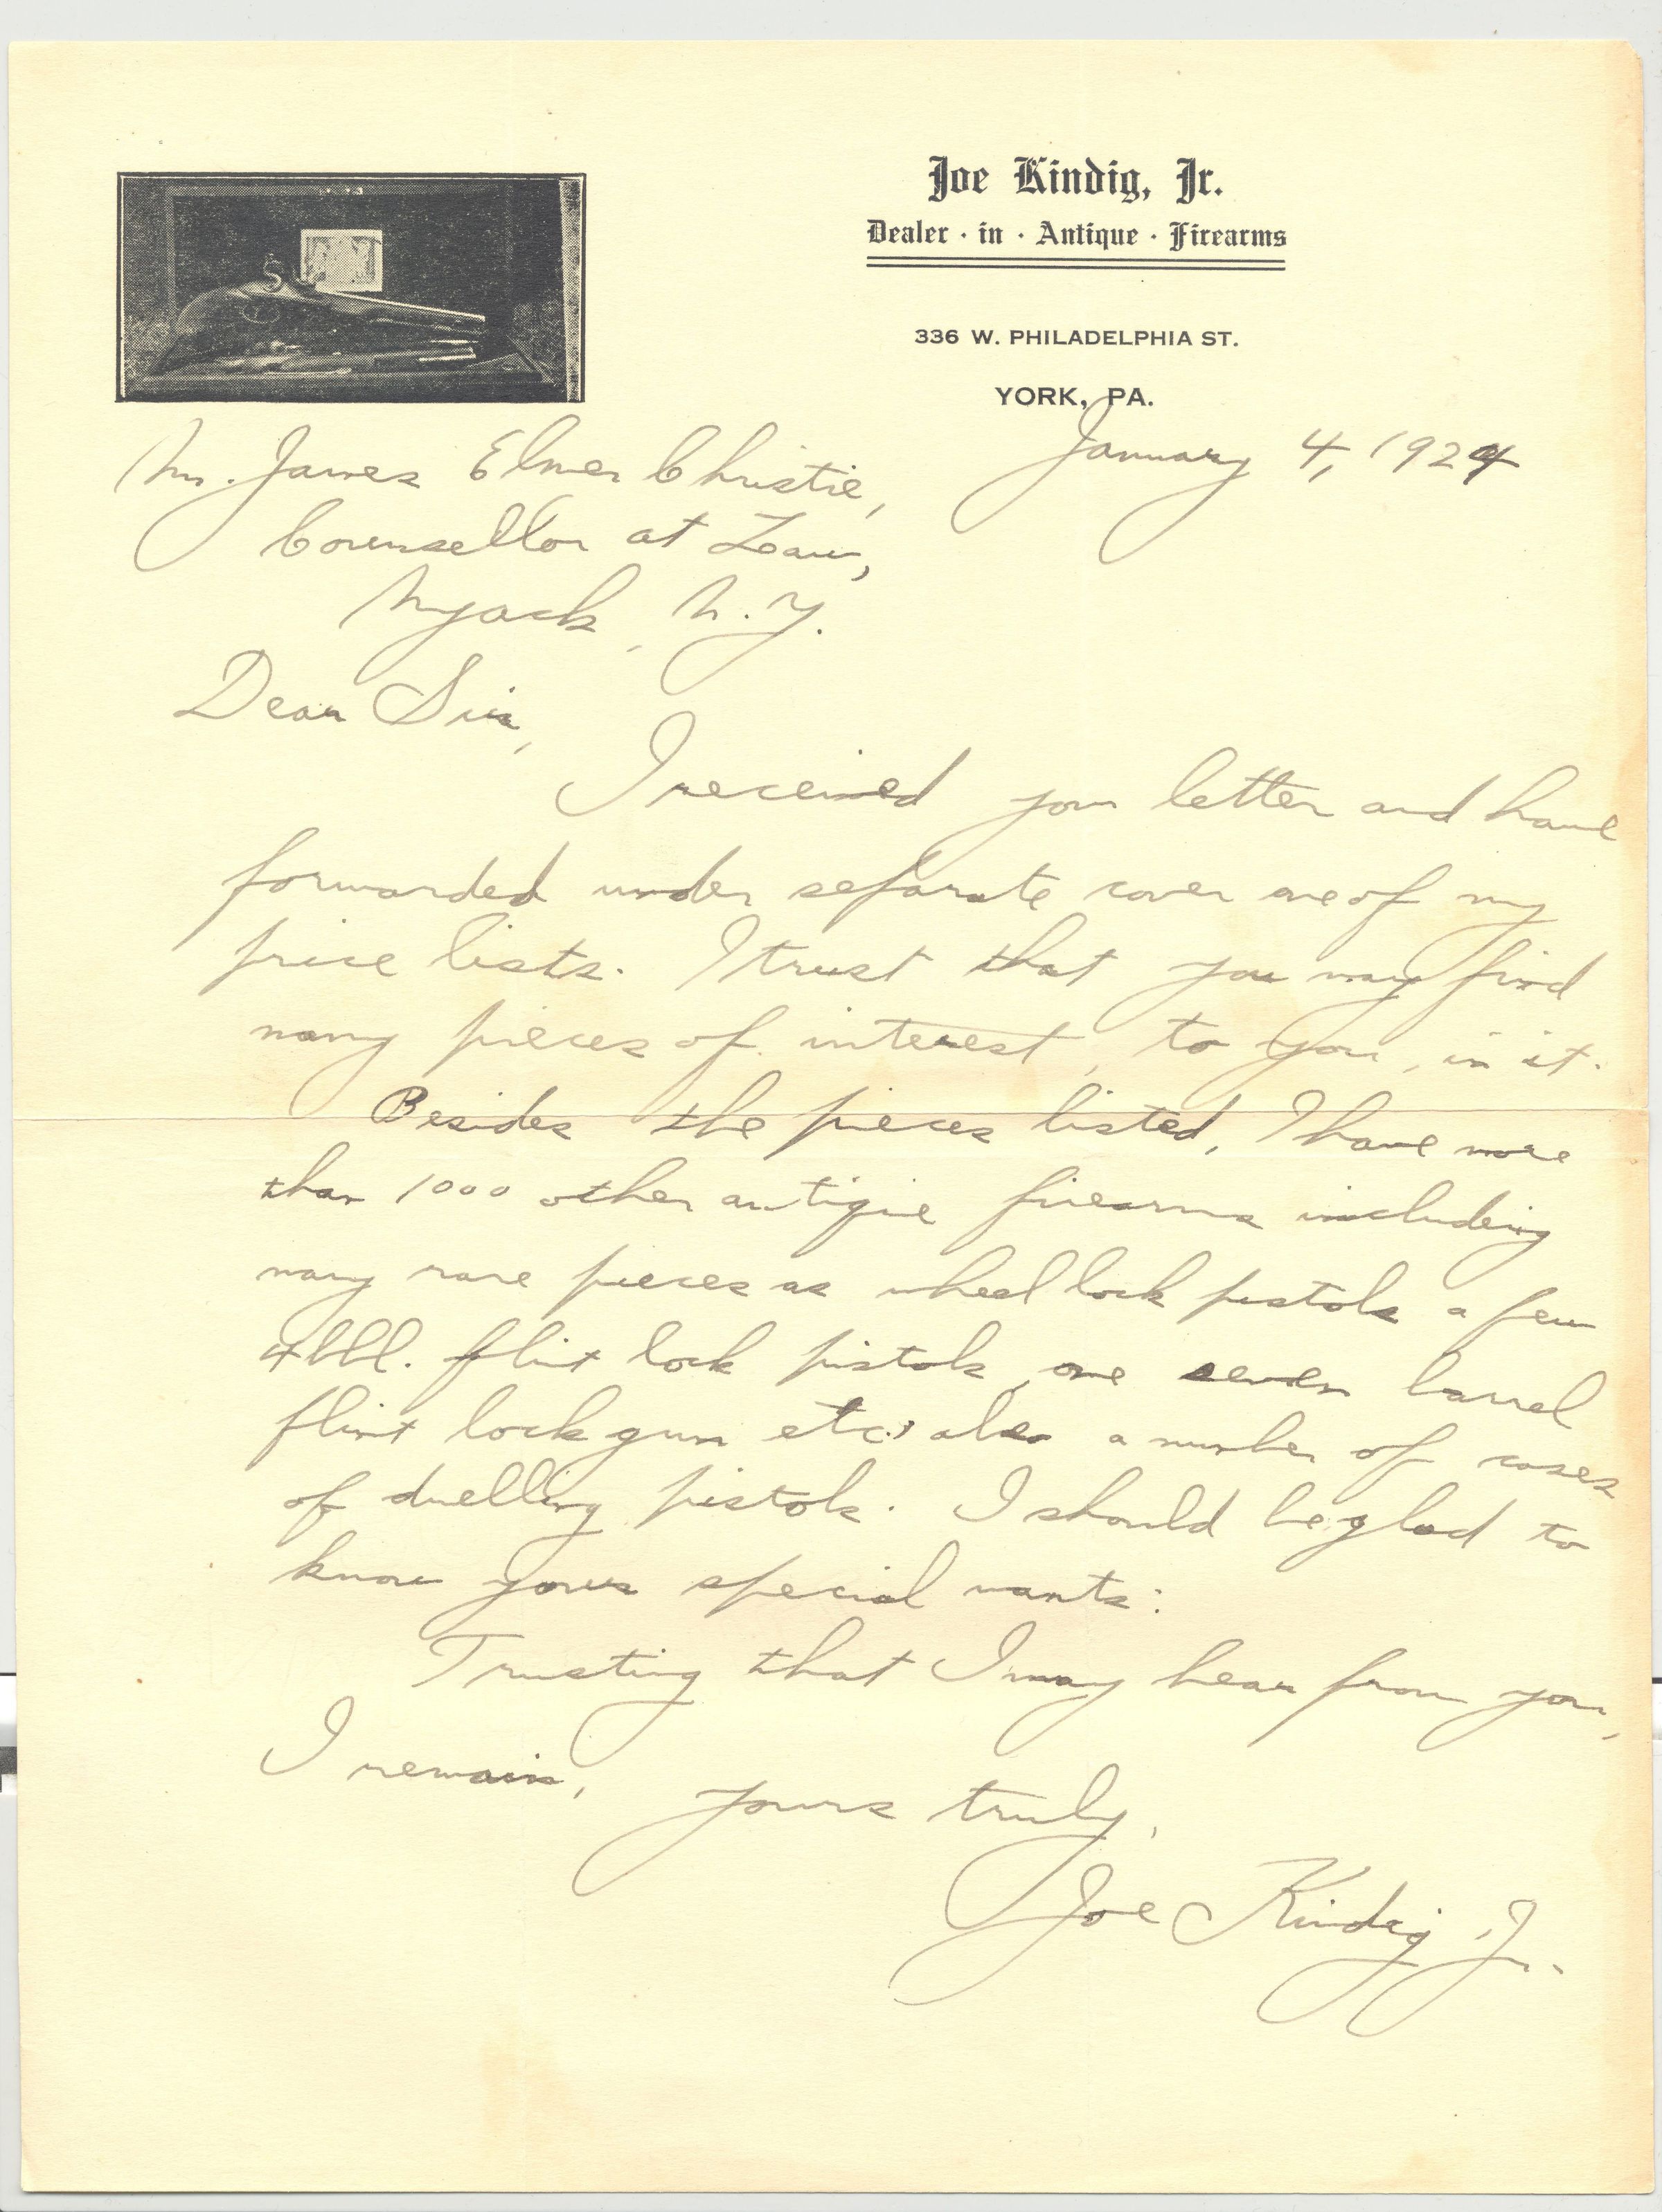 Joe Kindig, Jr.
Dealer · in · Antique · Firearms
336 W. PHILADELPHIA ST.
YORK, PA.
January 4, 1924
Mr. James Elmer Christie,
Counsellor at Law,
Nyack, N.Y.
Dear Sir,
I received your letter and have
forwarded under separate cover one of my
price lists. I trust that you may find
many pieces of interest, to you, in it.
Besides the pieces listed, I have more
than 1000 other antique firearms including
many rare pieces as wheel lock pistols a few
4 bbl. flint lock pistols, one seven barrel
flint lock gun etc; also a number of cases
of duelling pistols. I should be glad to
know your special wants:
Trusting that I may hear from you,
I remain,
yours truly,
Joe Kindig Jr.